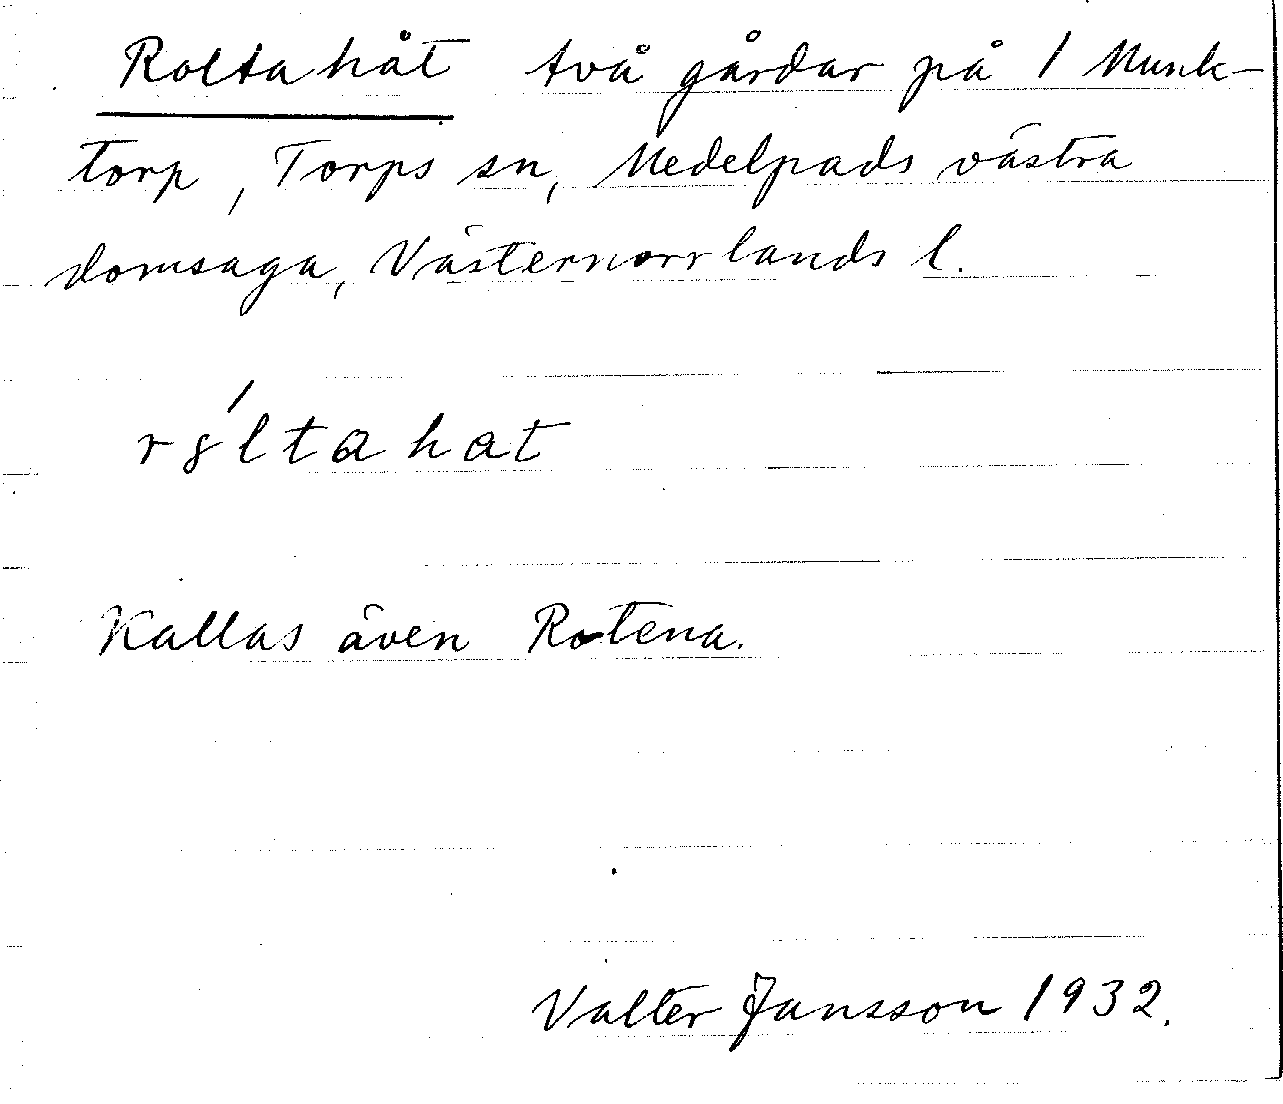 Roltahåt två gårdar på 1 Munk-
torp, Torps sn, Medelpads västra
domsaga, Västernorrlands l.
r8́ltahat
Kallas även Rotena.
Valter Jansson 1932.